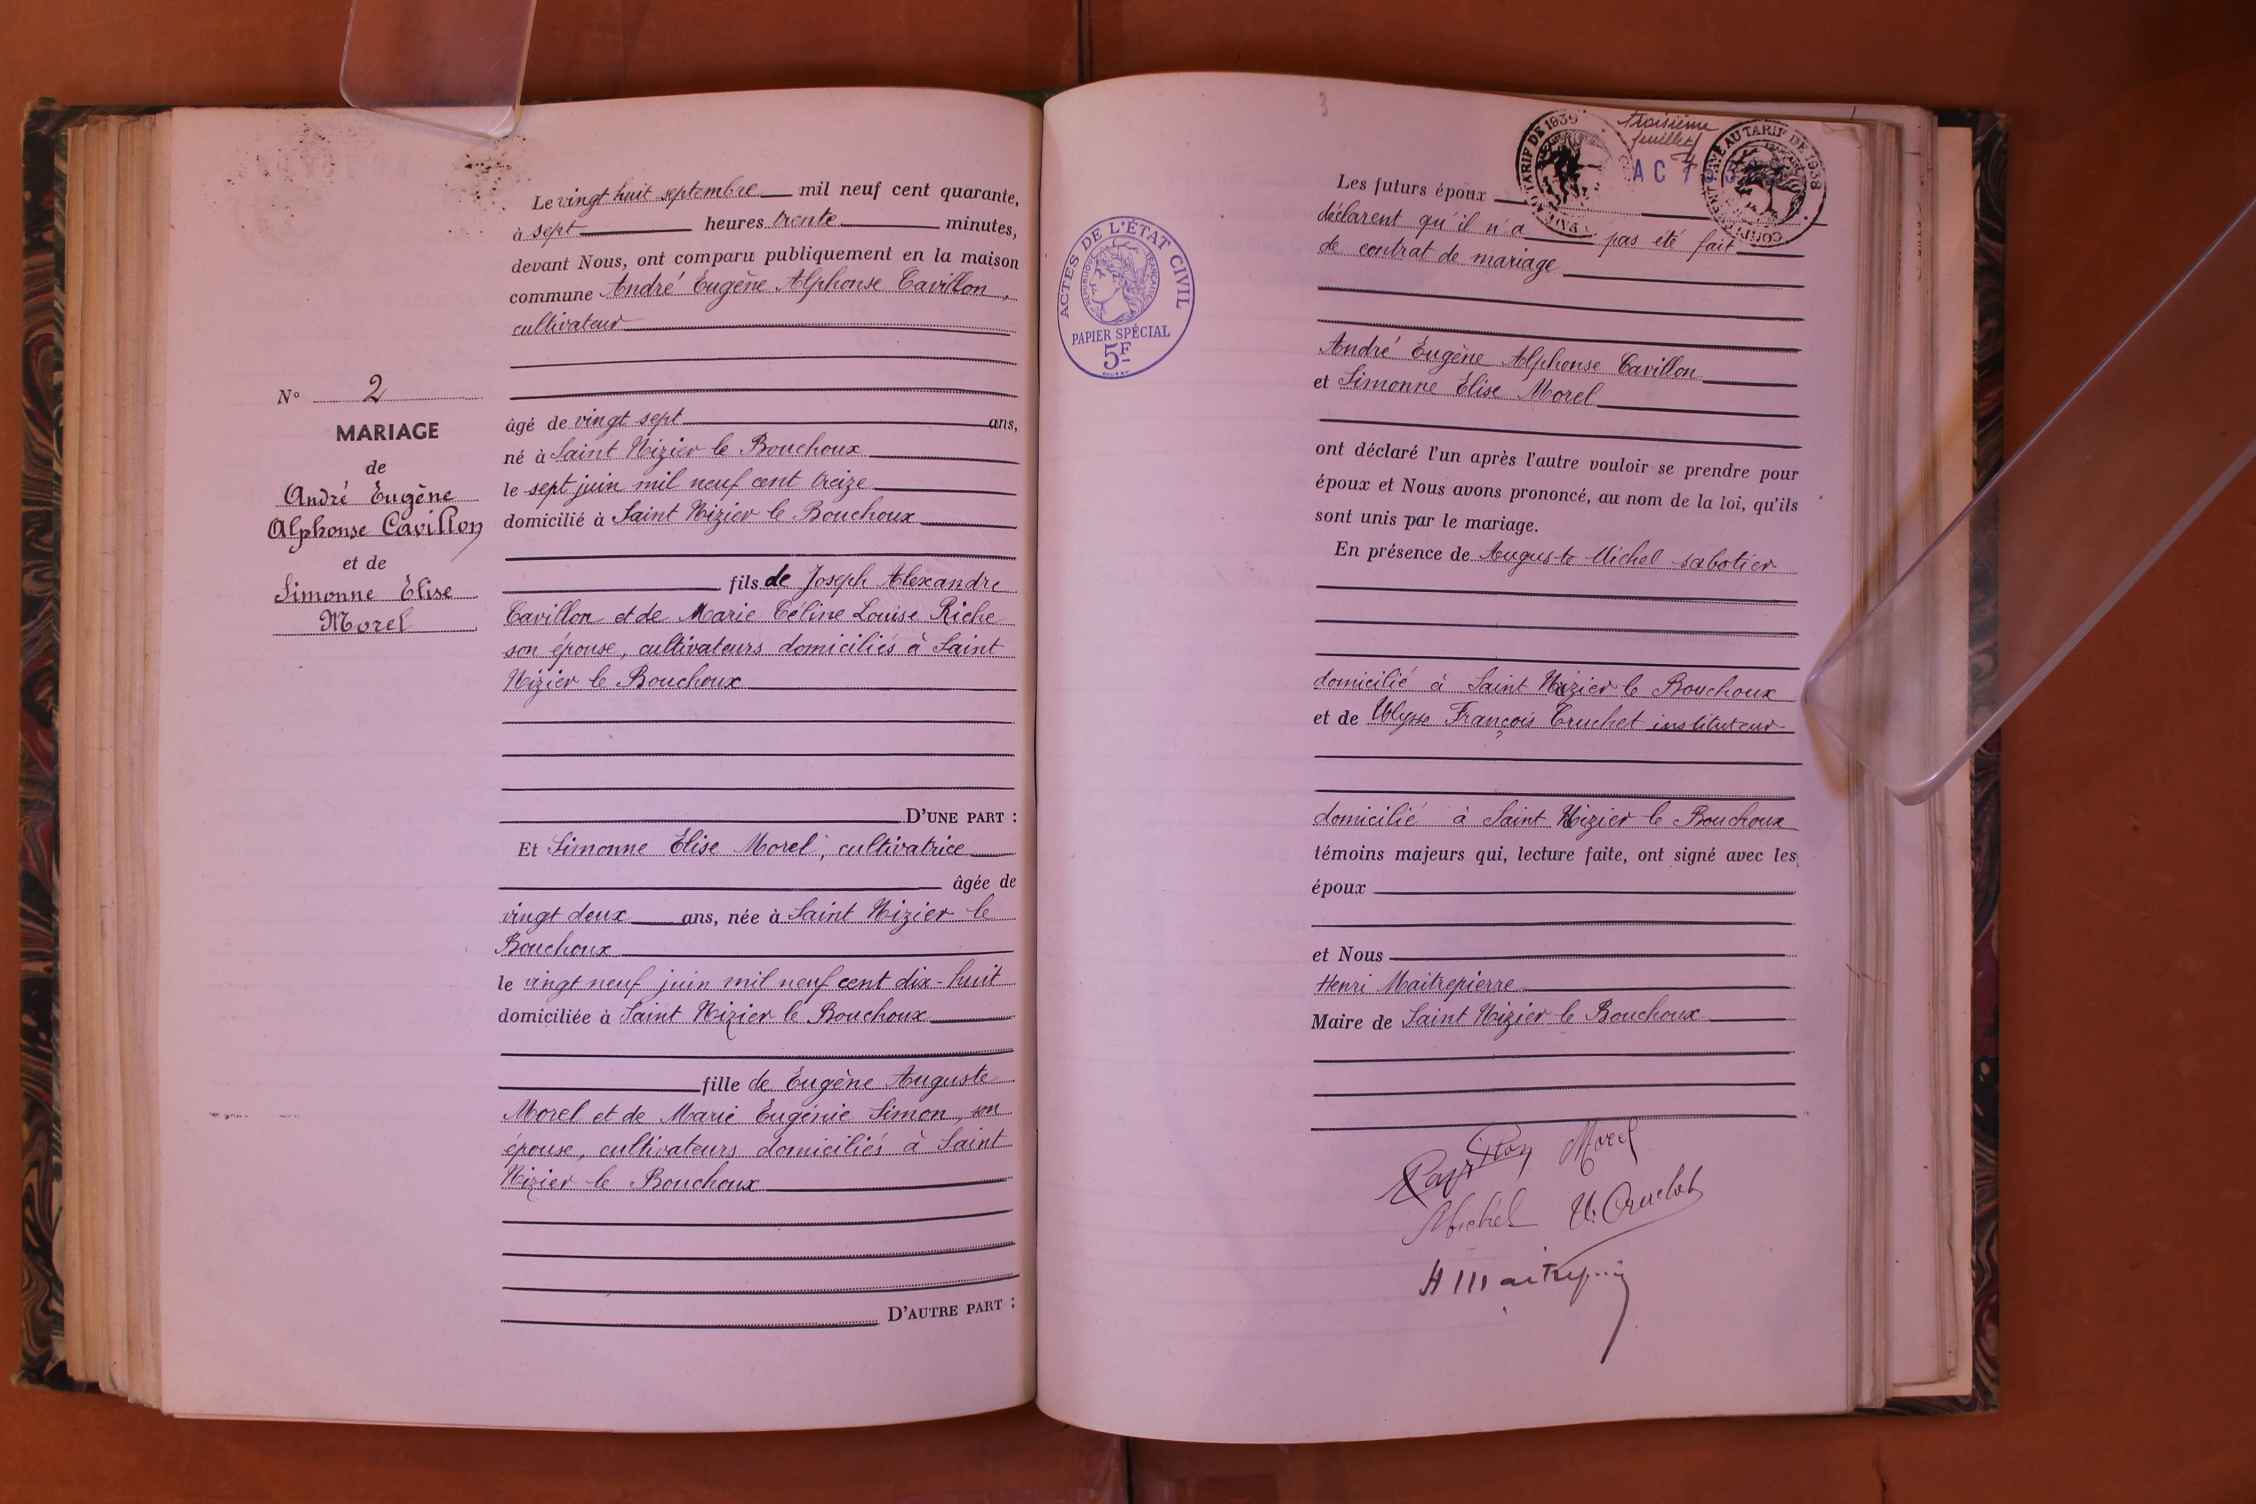 Le vingt huit septembre mil neuf cent quarante,
à sept heures trente minutes,
devant Nous, ont comparu publiquement en la maison
commune André Eugène Alphonse Cavillon,
cultivateur
N° 2
MARIAGE
de
André Eugène
Alphonse Cavillon
et de
Simonne Élise
Morel
âgé de vingt sept ans,
né à Saint Nizier le Bouchoux
le sept juin mil neuf cent treize
domicilié à Saint Nizier le Bouchoux
fils de Joseph Alexandre
Cavillon et de Marie Céline Louise Riche
son épouse, cultivateurs domiciliés à Saint
Nizier le Bouchoux
D'UNE PART :
Et Simonne Elise Morel, cultivatrice
âgée de
vingt deux ans, née à Saint Nizier le
Bouchoux
le vingt neuf juin mil neuf cent dix-huit
domiciliée à Saint Nizier le Bouchoux
fille de Eugène Auguste
Morel et de Marie Eugénie Simon, son
épouse, cultivateurs domiciliés à Saint
Nizier le Bouchoux
D'AUTRE PART :
3
troisième
feuillet
TARIF DE 1939
AC
PAYÉ AU TARIF DE 1938
ACTES DE L'ÉTAT CIVIL
RÉPUBLIQUE FRANÇAISE
PAPIER SPÉCIAL
5F
Les futurs époux
déclarent qu'il n'a pas été fait
de contrat de mariage
André Eugène Alphonse Cavillon
et Simonne Elise Morel
ont déclaré l'un après l'autre vouloir se prendre pour
époux et Nous avons prononcé, au nom de la loi, qu'ils
sont unis par le mariage.
En présence de Auguste Michel sabotier
domicilié à Saint Nizier le Bouchoux
et de Ulysse François Truchet instituteur
domicilié à Saint Nizier le Bouchoux
témoins majeurs qui, lecture faite, ont signé avec les
époux
et Nous
Henri Maitrepierre
Maire de Saint Nizier le Bouchoux
Cavillon Morel
Michel U. Truchet
H Maitrepierre